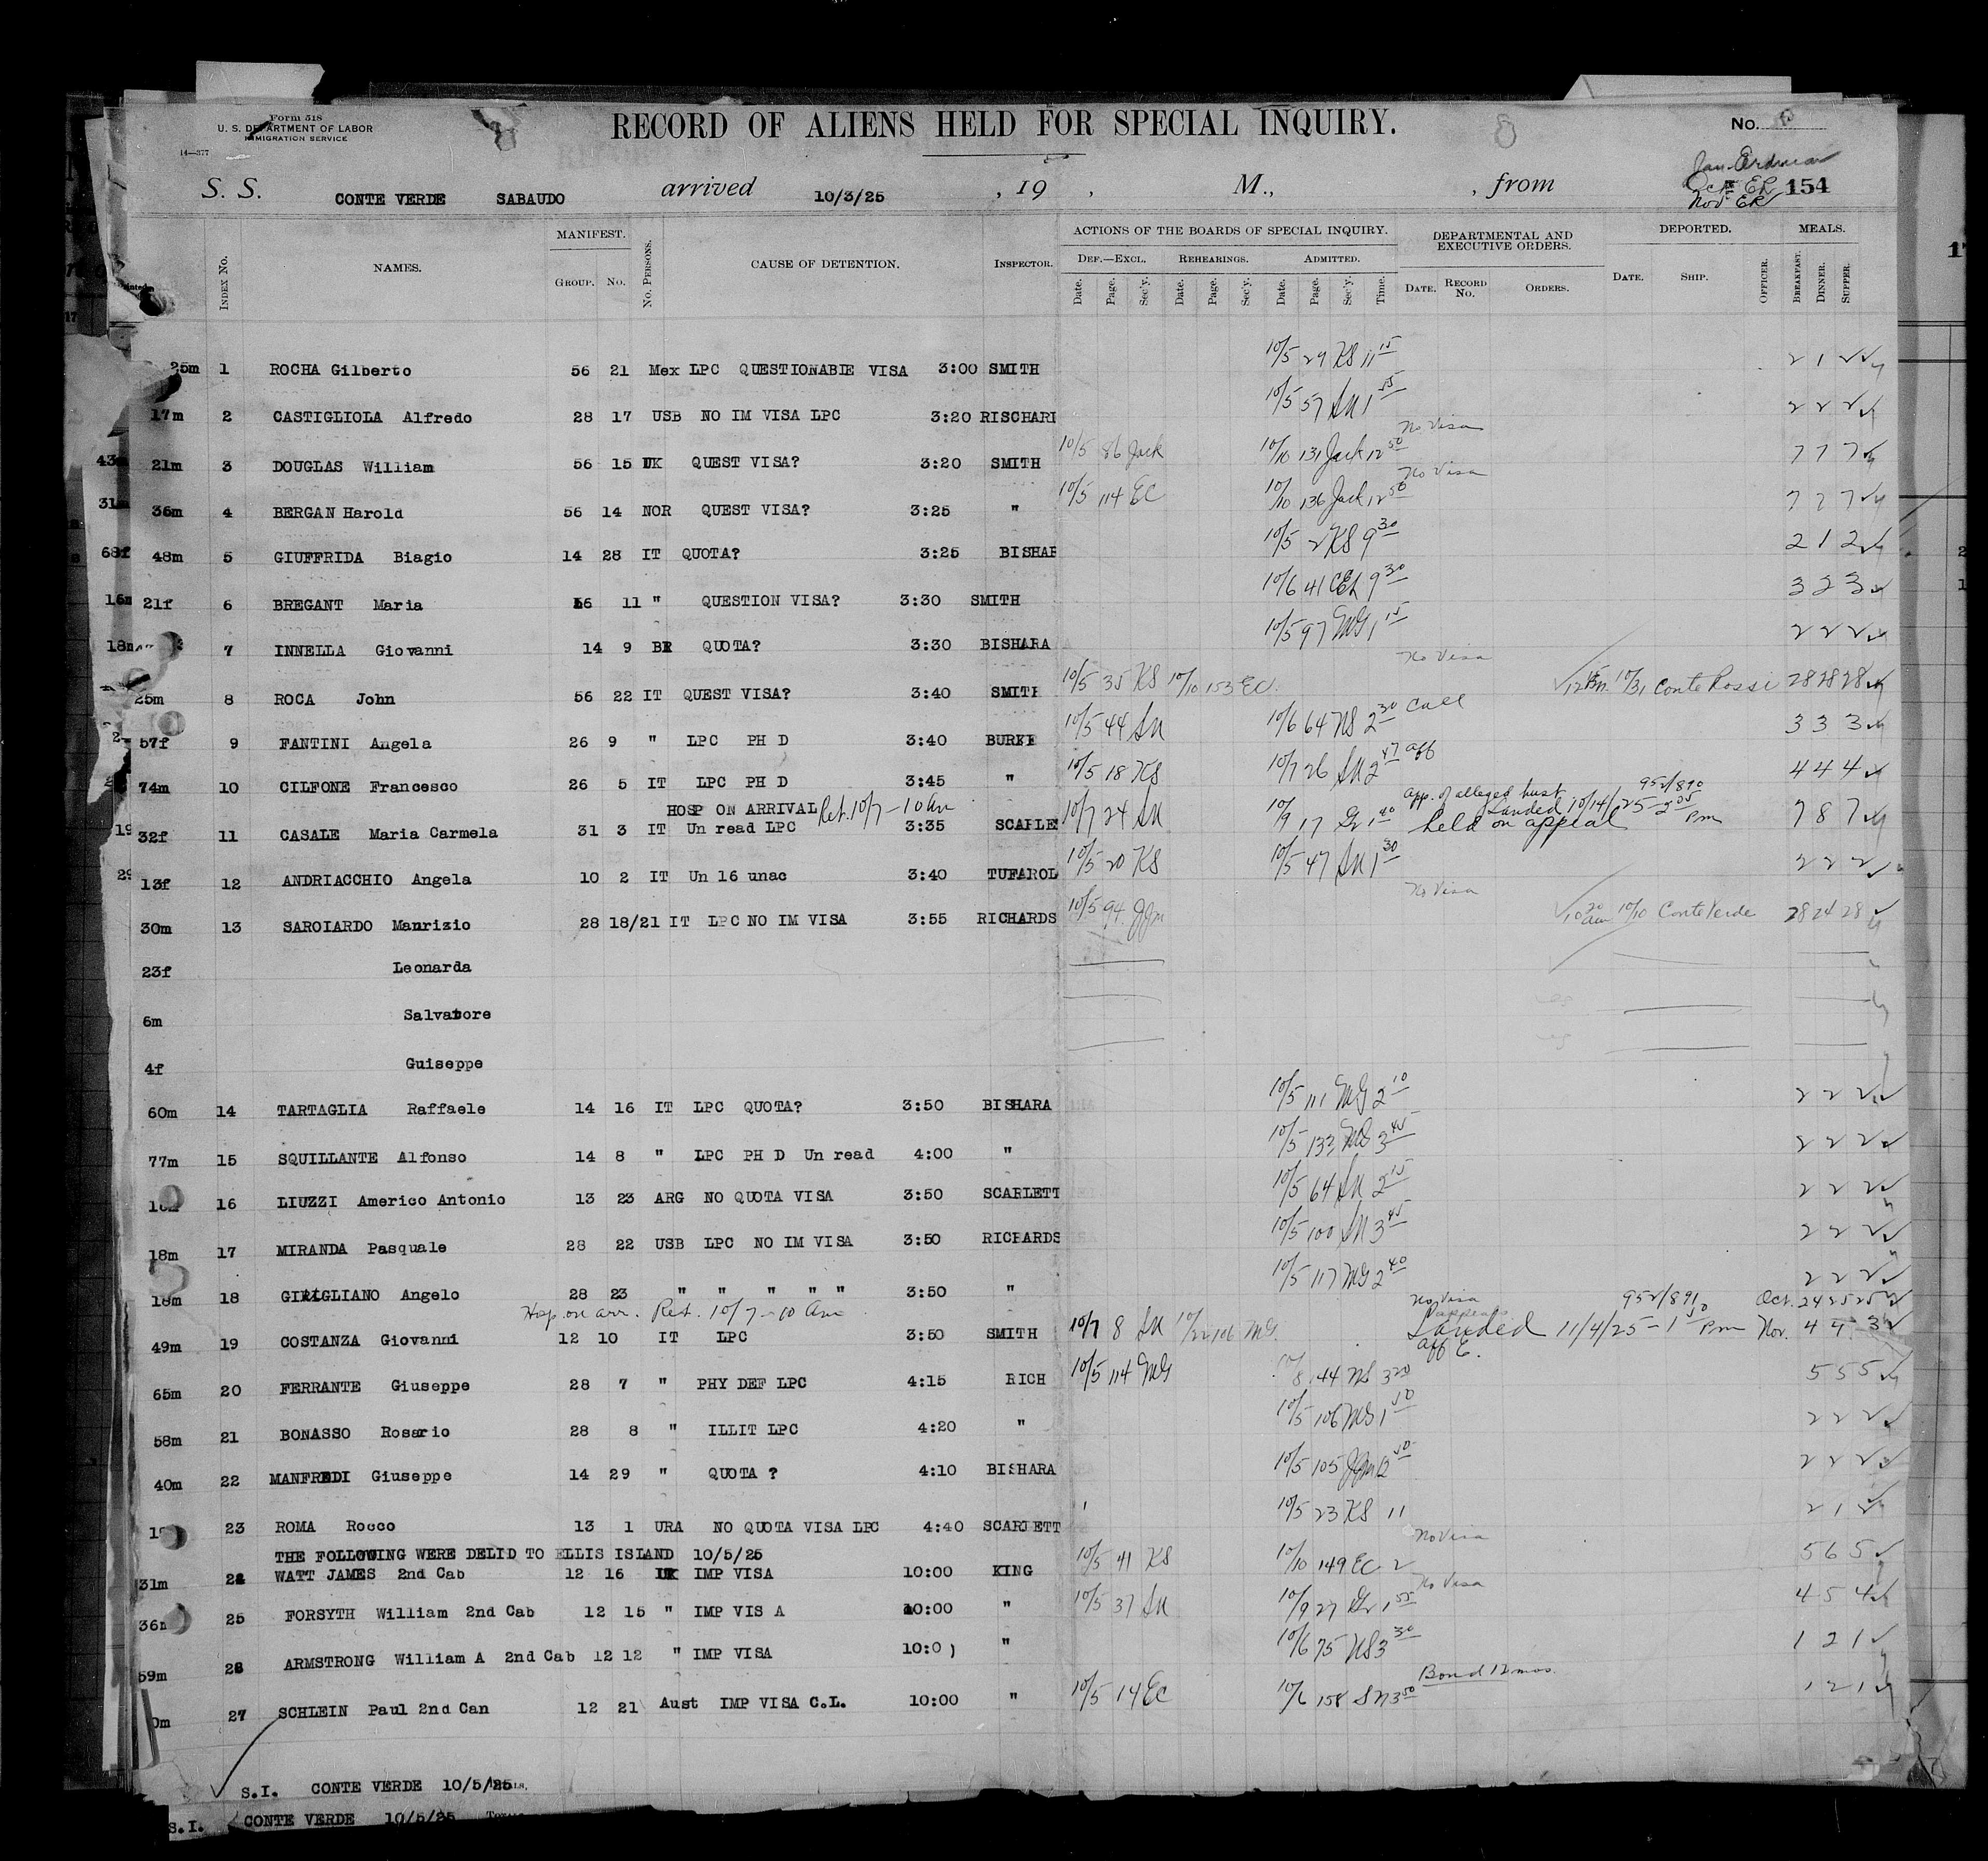 Form 518
U. S. DEPARTMENT OF LABOR
IMMIGRATION SERVICE
14—377
RECORD OF ALIENS HELD FOR SPECIAL INQUIRY.
No.
154
S. S. CONTE VERDE SABAUDO arrived 10/3/25 , 19 , M., , from
INDEX No. NAMES. MANIFEST. GROUP. No. No. PERSONS. CAUSE OF DETENTION. INSPECTOR. ACTIONS OF THE BOARDS OF SPECIAL INQUIRY. DEF.—EXCL. Date. Page. Sec'y. REHEARINGS. Date. Page. Sec'y. ADMITTED. Date. Page. Sec'y. Time. DEPARTMENTAL AND EXECUTIVE ORDERS. DATE. RECORD No. ORDERS. DEPORTED. DATE. SHIP. OFFICER. MEALS. BREAKFAST. DINNER. SUPPER.
25m 1 ROCHA Gilberto 56 21 Mex LPC QUESTIONABIE VISA 3:00 SMITH 10/5 29 KS 11 15 2 1 2
17m 2 CASTIGLIOLA Alfredo 28 17 USB NO IM VISA LPC 3:20 RISCHARI 10/5 57 SN 1 55 2 2 2
No Visa
21m 3 DOUGLAS William 56 15 UK QUEST VISA? 3:20 SMITH 10/5 86 Jack 10/10 131 Jack 12 50 7 7 7
No Visa
36m 4 BERGAN Harold 56 14 NOR QUEST VISA? 3:25 " 10/5 114 EC 10/10 136 Jack 12 50 7 7 7
48m 5 GIUFFRIDA Biagio 14 28 IT QUOTA? 3:25 BISHAR 10/5 2 KS 9 30 2 1 2
21f 6 BREGANT Maria 56 11 " QUESTION VISA? 3:30 SMITH 10/6 41 9 30 3 2 3
7 INNELLA Giovanni 14 9 BR QUOTA? 3:30 BISHARA 10/5 97 MG 1 15 2 2 2
No Visa
25m 8 ROCA John 56 22 IT QUEST VISA? 3:40 SMITH 10/5 35 KS 10/10 153 EC 10/31 Conte Rosso 28 28 28
57f 9 FANTINI Angela 26 9 " LPC PH D 3:40 BURKE 10/5 44 SN 10/6 64 NS 2 30 Call 3 3 3
74m 10 CILFONE Francesco 26 5 IT LPC PH D 3:45 " 10/5 18 KS 10/7 26 SN 2 47 aff 4 4 4
HOSP ON ARRIVAL Ret. 10/7 - 10 Am app. of alleged hust. 952/890
Landed 10/14/25 - 2 05 Pm
32f 11 CASALE Maria Carmela 31 3 IT Un read LPC 3:35 SCARLE 10/7 24 SN 10/9 17 1 40 held on appeal 7 8 7
13f 12 ANDRIACCHIO Angela 10 2 IT Un 16 unac 3:40 TUFAROL 10/5 20 KS 10/5 47 SN 1 30 2 2 2
No Visa
30m 13 SAROIARDO Maurizio 28 18/21 IT LPC NO IM VISA 3:55 RICHARDS 10/5 94 JJM 10 20 am 10/10 Conte Verde 28 24 28
23f Leonarda
6m Salvatore
4f Guiseppe
60m 14 TARTAGLIA Raffaele 14 16 IT LPC QUOTA? 3:50 BISHARA 10/5 111 MG 2 10 2 2 2
77m 15 SQUILLANTE Alfonso 14 8 " LPC PH D Un read 4:00 " 10/5 133 NS 3 45 2 2 2
16 LIUZZI Americo Antonio 13 23 ARG NO QUOTA VISA 3:50 SCARLETT 10/5 64 SN 2 15 2 2 2
18m 17 MIRANDA Pasquale 28 22 USB LPC NO IM VISA 3:50 RICHARDS 10/5 100 SN 3 45 2 2 2
18m 18 GIRIGLIANO Angelo 28 23 " " " " " 3:50 " 10/5 117 MG 2 40 2 2 2
Hosp. on arr. Ret. 10/7 - 10 Am No Visa 952/891 Oct. 24 25 25
49m 19 COSTANZA Giovanni 12 10 IT LPC 3:50 SMITH 10/7 8 SN 10/22 106 MG Landed 11/4/25 - 1 50 Pm Nov. 4 4 3
aff E.
65m 20 FERRANTE Giuseppe 28 7 " PHY DEF LPC 4:15 RICH 10/5 114 MG 10/8 144 NS 3 20 5 5 5
58m 21 BONASSO Rosario 28 8 " ILLIT LPC 4:20 " 10/5 106 NS 1 50 2 2 2
40m 22 MANFREDI Giuseppe 14 29 " QUOTA ? 4:10 BISHARA 10/5 105 JJM 12 50 2 2 2
23 ROMA Rocco 13 1 URA NO QUOTA VISA LPC 4:40 SCARLETT 10/5 23 KS 11 2 1 2
THE FOLLOWING WERE DELID TO ELLIS ISLAND 10/5/25 No Visa
31m 24 WATT JAMES 2nd Cab 12 16 UK IMP VISA 10:00 KING 10/5 41 KS 10/10 149 EC 2 5 6 5
No Visa
36m 25 FORSYTH William 2nd Cab 12 15 " IMP VIS A 10:00 " 10/5 37 SN 10/9 27 1 55 4 5 4
59m 26 ARMSTRONG William A 2nd Cab 12 12 " IMP VISA 10:0 " 10/6 75 NS 3 30 1 2 1
Bond 12 mos.
27 SCHLEIN Paul 2nd Can 12 21 Aust IMP VISA C.L. 10:00 " 10/5 14 EC 10/6 158 SN 3 50 1 2 1
S.I. CONTE VERDE 10/5/25
S.I. CONTE VERDE 10/5/25